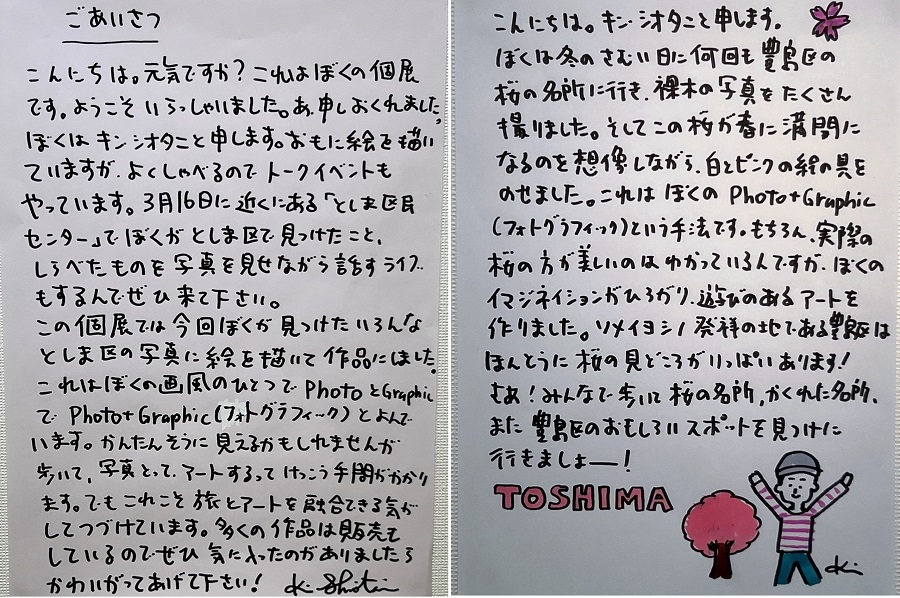 ごあいさつ
こんにちは。元気ですか？これはぼくの個展
です。ようこそいらっしゃいました。あ、申しおくれました、
ぼくはキン・シオタニと申します。おもに絵を描い
ていますが、よくしゃべるのでトークイベントも
やっています。3月16日に近くにある「としま区民
センター」でぼくがとしま区で見つけたこと、
しらべたものを写真を見せながら話すライブ
もするんでぜひ来て下さい。
この個展では今回ぼくが見つけたいろんな
としま区の写真に絵を描いて作品にしました。
これはぼくの画風のひとつでPhotoとGraphic
でPhoto+Graphic(フォトグラフィック)とよんで
います。かんたんそうに見えるかもしれませんが
歩いて、写真とって、アートするってけっこう手間がかかり
ます。でもこれこそ旅とアートを融合できる気が
してつづけています。多くの作品は販売も
しているのでぜひ気に入ったのがありましたら
かわいがってあげて下さい！
こんにちは。キン・シオタニと申します。
ぼくは冬のさむい日に何回も豊島区の
桜の名所に行き、裸木の写真をたくさん
撮りました。そしてこの桜が春に満開に
なるのを想像しながら、白とピンクの絵の具を
のせました。これはぼくのPhoto+Graphic
(フォトグラフィック)という手法です。もちろん、実際の
桜の方が美しいのはわかっているんですが、ぼくの
イマジネイションがひろがり、遊びのあるアートを
作りました。ソメイヨシノ発祥の地である豊島区は
ほんとうに桜の見どころがいっぱいあります！
さあ！みんなで歩いて桜の名所、かくれた名所、
また豊島区のおもしろいスポットを見つけに
行きましょー！
TOSHIMA